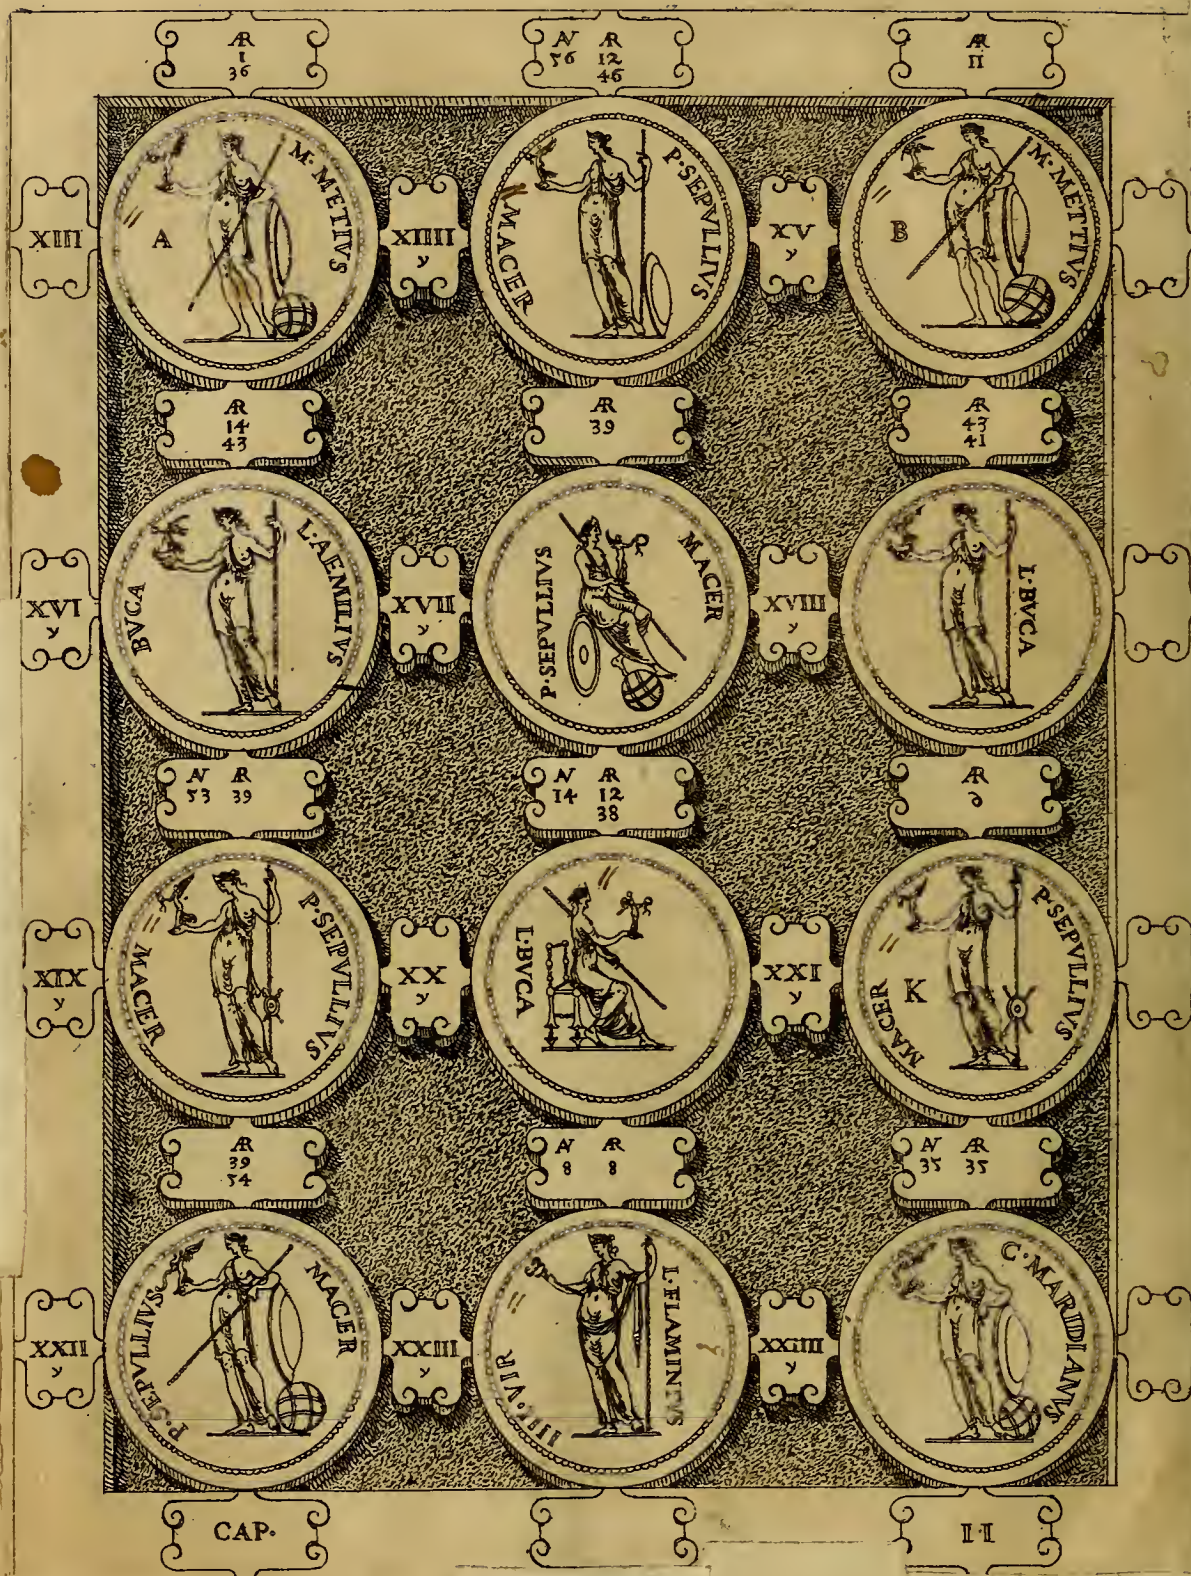 AR
1
36
AV AR
56 12
46
AR
II
XIII
A
M·METIVS
XIIII
y
MACER
P·SEPVLLIVS
XV
y
B
M·METTIVS
AR
14
43
AR
39
AR
43
41
XVI
y
BVCA
L·AEMILIVS
XVII
y
P·SEPVLLIVS
MACER
XVIII
y
L·BVCA
AV AR
53 39
AV AR
14 12
38
AR
9
XIX
y
MACER
P·SEPVLLIVS
XX
y
L·BVCA
XXI
y
MACER
K
P·SEPVLLIVS
AR
39
54
AV AR
8 8
AV AR
35 35
XXII
y
P·SEPVLLIVS
MACER
XXIII
y
IIII·VIR
L·FLAMINIVS
XXIIII
y
C·MARIDIANVS
CAP·
I·I